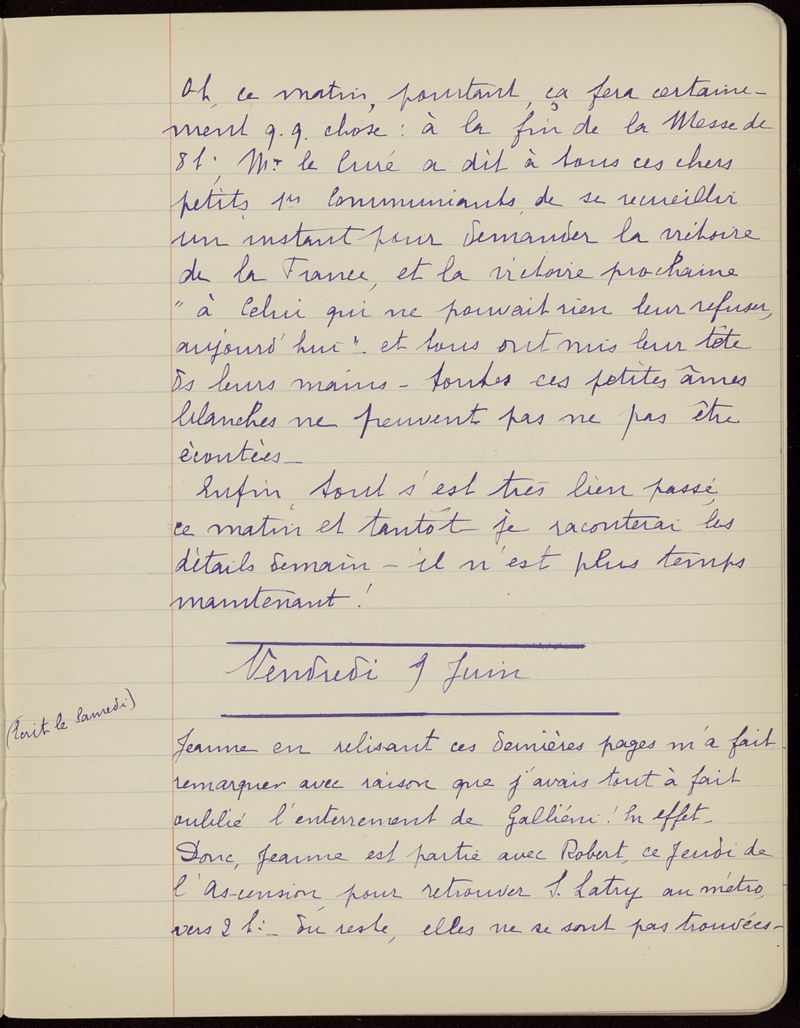 Oh, ce matin, pourtant, ça fera certaine-
ment q.q. chose : à la fin de la Messe de
8h:, Mr le Curé a dit à tous ces chers
petits 1rs Communiants, de se recueillir
un instant pour demander la victoire
de la France, et la victoire prochaine
"à Celui qui ne pouvait rien leur refuser,
aujourd'hui" - et tous ont mis leur tête
ds leurs mains - toutes ces petites âmes
blanches ne peuvent pas ne pas être
écoutées -
Enfin, tout s'est très bien passé,
ce matin et tantôt je raconterai les
détails demain - il n'est plus temps
maintenant !
Vendredi 9 Juin
(Écrit le Samedi)
Jeanne en relisant ces dernières pages m'a fait
remarquer avec raison que j'avais tout à fait
oublié l'enterrement de Galliéni ! En effet -
Donc, Jeanne est partie avec Robert, ce Jeudi de
l'Ascension, pour retrouver S. Latry au métro,
vers 2 h: - Du reste, elles ne se sont pas trouvées -